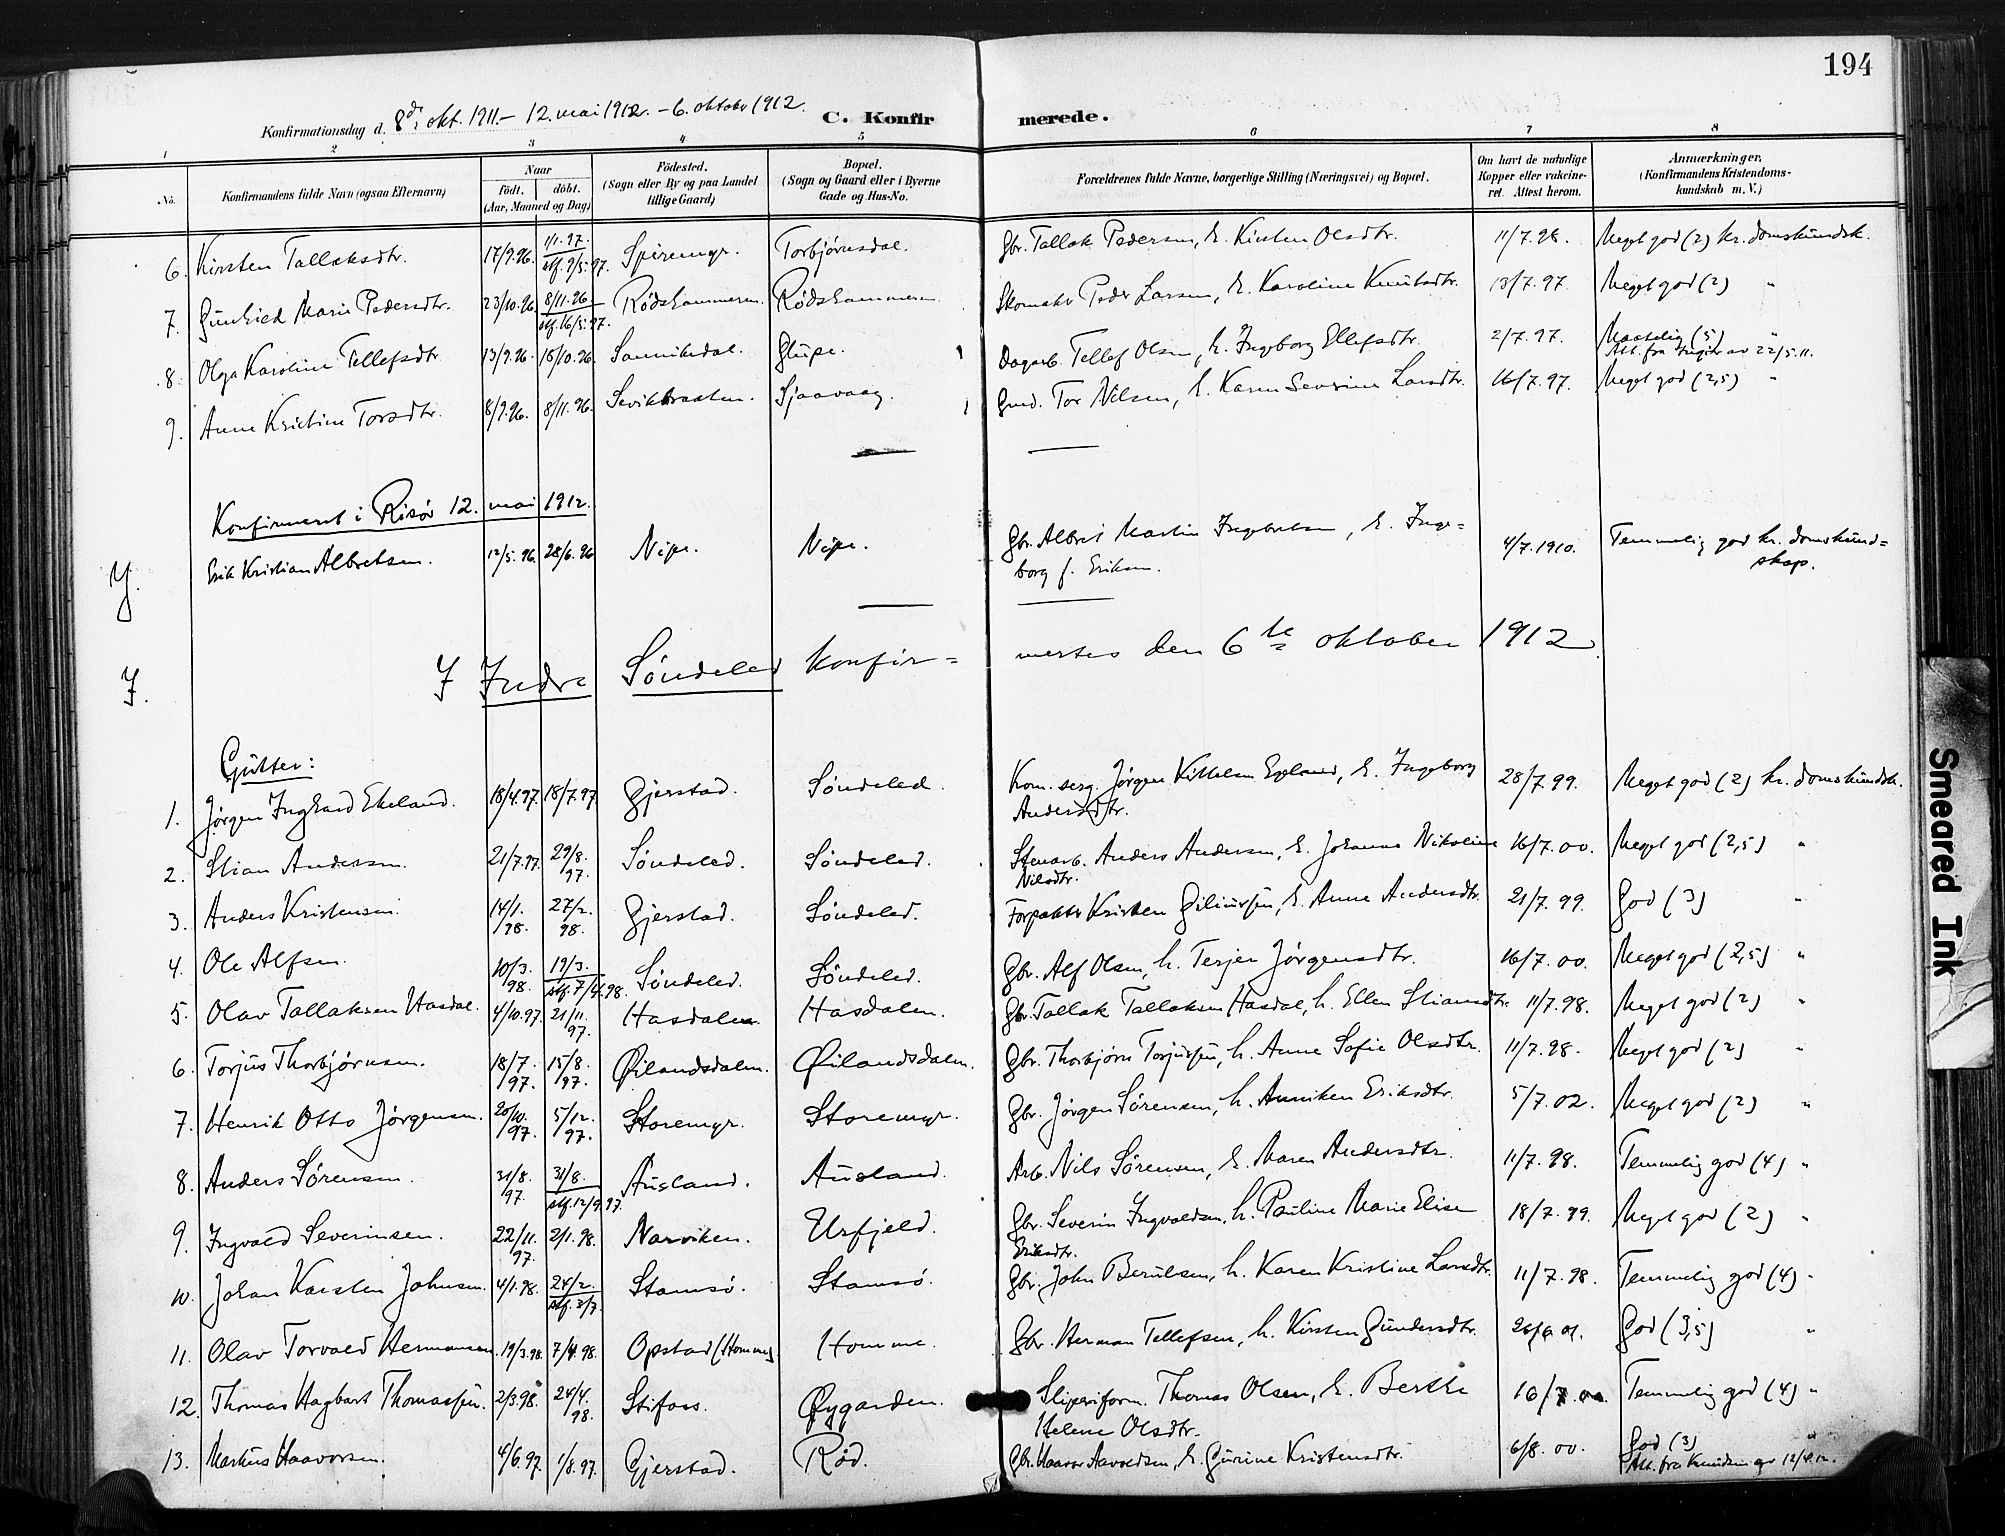 194
Konfirmationsdag d. 8de okt. 1911. – 12. mai 1912. – 6. oktober 1912.
C. Konfirmerede.
1 2 3 4 5 6 7 8
No.
Konfirmandens fulde Navn (ogsaa Efternavn)
Naar
født. døbt.
(Aar, Maaned og Dag)
Fødested.
(Sogn eller By og paa Landet
tillige Gaard)
Bopæl.
(Sogn og Gaard eller i Byerne
Gade og Hus-No.
Forældrenes fulde Navne, borgerlige Stilling (Næringsvei) og Bopæl.
Om havt de naturlige
Kopper eller vakcineret. Attest herom.
Anmærkninger.
(Konfirmandens Kristendomskundskab m. V.)
6. Kirsten Tallaksdtr. 17/9.96. 1/1.97. stf. 9/5.97. Spiremyr. Torbjørnsdal. Gbr. Tallak Pedersen, h. Kirsten Olsdtr. 11/7.98. Meget god (2) kr.domskundsk.
7. Gunhild Marie Pedersdtr. 23/10.96. 8/11.96 stf. 16/5.97. Rødskammeren. Rødskammeren Skomaker Peder Larsen, h. Karoline Knutsdtr. 13/7.97. Meget god (2) "
8. Olga Karoline Tellefsdtr 13/9.96. 18/10.96. Sannikedal. Glupe. Dagarb. Tellef Olsen, h. Ingeborg Ellefsdtr. 2/7.97. Maatelig (5) "
Att. fra 22/5.11.
9. Anne Kristine Torsdtr. 8/9.96. 8/11.96. Sjaavaag. Tor Nilsen, h. Karen Severine Larsdtr. 16/7.97. Meget god (2,5) "
Konfirmeret i Risør 12. mai 1912.
Y. Erik Kristian Albretsen. 12/5.96. 28/6.96 Nipe. Nipe. Gbr. Albret Martin Ingebretsen, h. Inge=
borg f. Eriksen. 4/7.1910. Temmelig god kr.domskund=
skap.
I. I Indre Søndeled konfir= mertes den 6te oktober 1912.
Gutter:
1. Jørgen Ingvard Ekeland. 18/4.97. 18/7.97 Gjerstad. Søndeled. Kom. serg. Jørgen Egeland, h. Ingeborg
Andersdtr. 28/7.99. Meget god (2) kr.domskundsk.
2. Stian Andersen. 21/7.97. 29/8.97. Søndeled. Søndeled. Stenarb. Anders Andersen, h. Johanne Nikoline
Nilsdtr. 16/7.00. Meget god (2,5) "
3. Anders Kristensen. 14/1.98. 27/2.98. Gjerstad. Søndeled. Forpakter Kristen Giliussen, h. Anne Andersdtr. 21/7.99. God (3) "
4. Ole Alfsen. 10/3.98. 19/3. stf. 7/4.98. Søndeled. Søndeled. Gbr. Alf Olsen, h. Terjer Jørgensdtr. 16/7.00. Meget god (2,5) "
5. Olav Tallaksen Hasdal. 4/10.97. 21/11.97. Hasdalen. Hasdalen. Gbr. Tallak Tallaksen Hasdal, h. Ellen Stiansdtr. 11/7.98. Meget god (2) "
6. Torjus Thorbjørnsen. 18/7.97. 15/8.97. Øilandsdalen. Øilandsdalen. Gbr. Thorbjørn Torjussen, h. Anne Sofie Olsdtr. 11/7.98. Meget god (2) "
7. Henrik Otto Jørgensen. 20/10.97. 5/12.97. Storemyr. Storemyr. Gbr. Jørgen Sørensen, h. Anniken Eriksdtr. 5/7.02. Meget god (2) "
8. Anders Sørensen. 31/8.97. 31/8. stf. 12/9.97. Ausland. Ausland. Arb. Nils Sørensen, h. Maren Andersdtr. 11/7.98. Temmelig god (4) "
9. Ingvald Severinsen. 22/11.97. 2/1.98. Narviken. Urfjeld. Gbr. Severin Ingvaldsen, h. Pauline Marie Elise
Eriksdtr. 18/7.99. Meget god (2) "
10. Johan Karsten Johnsen. 4/1.98. 24/2. stf. 3/7. Stamsø. Stamsø. Gbr. John Berulsen, h. Karen Kristine Larsdtr. 11/7.98. Temmelig god (4) "
11. Olav Torvald Hermansen. 19/3.98. 7/4.98. Opstad (Homme) Homme. Gbr. Herman Tellefsen, h. Kirsten Gundersdtr. 01. God (3,5) "
12. Thomas Hagbart Thomassen. 2/3.98. 24/4.98. Stifoss. Øygarden. Sliperiform. Thomas Olsen, h. Berthe
Helene Olsdtr. 16/7.00. Temmelig god (4) "
13. Markus Haavorsen. 4/6.97. 1/8.97. Gjerstad. Rød. Gbr. Haavor Aavoldsen, h. Gurine Kristensdtr. 6/8.00. God (3) "
Att. fra Knudsen av 12/4.12.
Smeared Ink